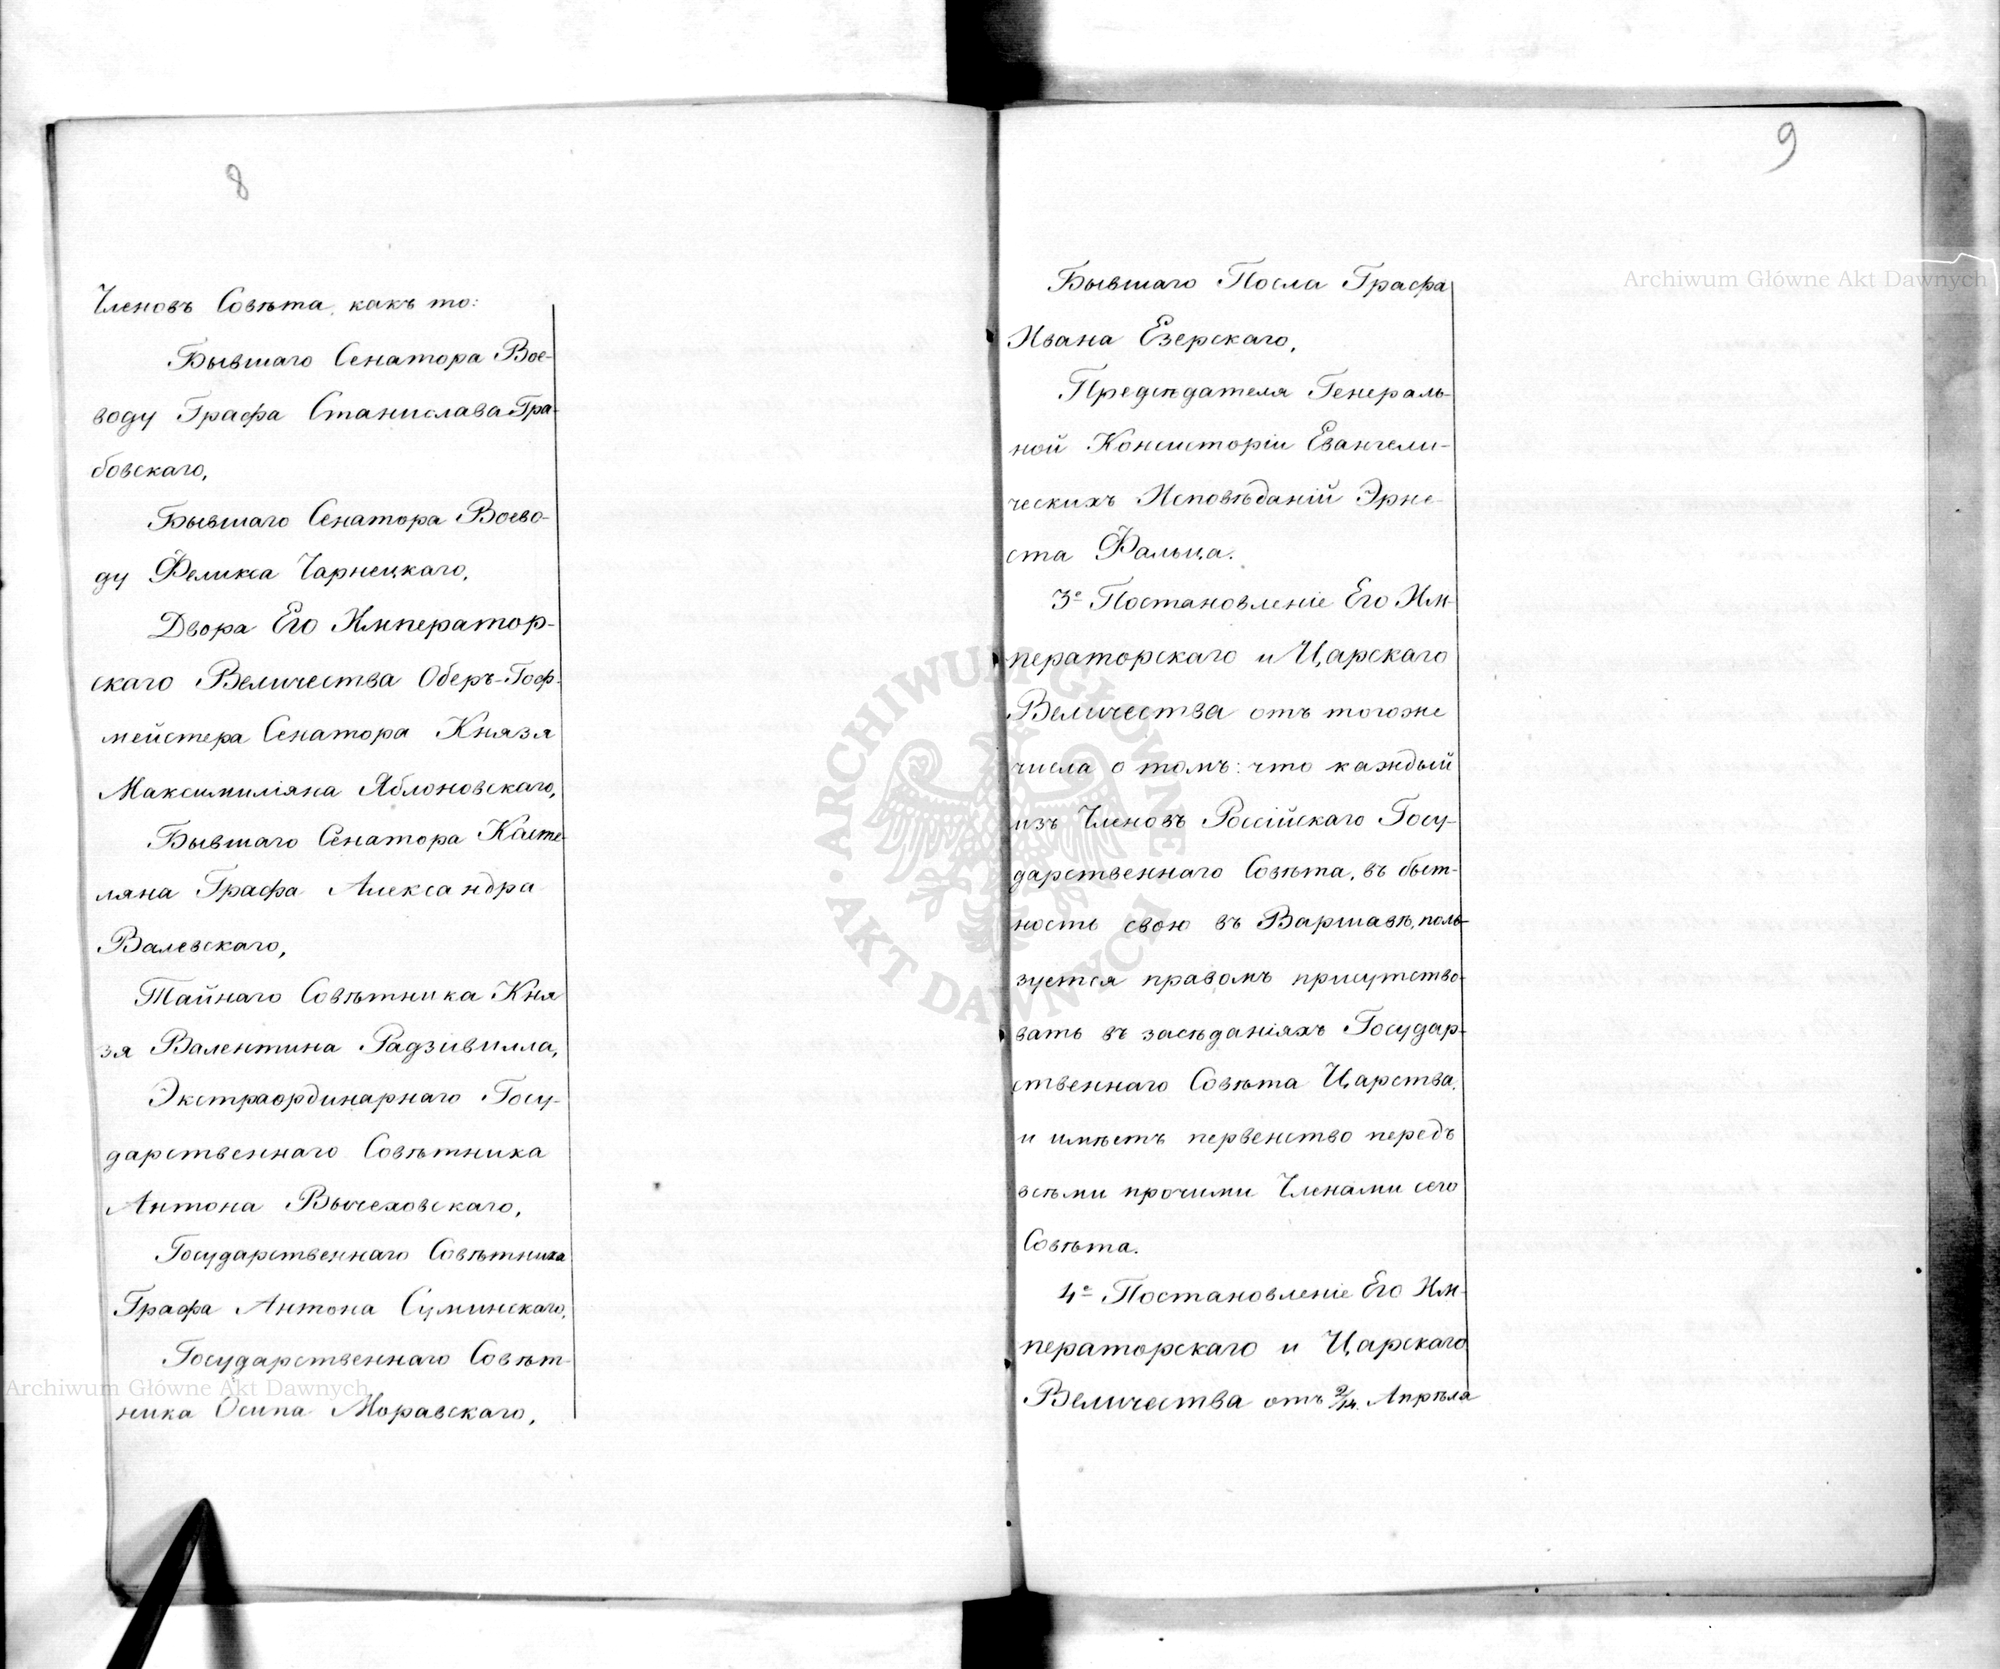 8
Членовъ Совѣта, какъ то:
Бывшаго Сенатора Вое-
воду Графа Станислава Гра-
бовскаго,
Бывшаго Сенатора Воево-
ду Феликса Чарнецкаго,
Двора Его Император-
скаго Величества Оберъ-Гоф-
мейстера Сенатора Князя
Максимиліяна Яблоновскаго,
Бывшаго Сенатора Касте-
ляна Графа Александра
Валевскаго,
Тайнаго Совѣтника Кня
зя Валентина Радзивилла,
Экстраординарнаго Госу-
дарственнаго Совѣтника
Антона Вычеховскаго,
Государственнаго Совѣтника
Графа Антона Суминскаго,
Государственнаго Совѣт-
ника Осипа Моравскаго,
Archiwum Główne Akt Dawnych
9
Бывшаго Посла Графа
Ивана Езерскаго,
Предсѣдателя Генераль-
ной Консисторіи Евангели-
ческихъ Исповѣданій Эрне-
ста Фальца.
3е Постановленіе Его Им-
ператорскаго и Царскаго
Величества отъ тогоже
числа о томъ: что каждый
изъ Членовъ Россійскаго Госу-
дарственнаго Совѣта, въ быт-
ность свою въ Варшавѣ, поль-
зуется правомъ присутство-
вать въ засѣданіяхъ Государ-
ственнаго Совѣта Царства,
и имѣетъ первенство передъ
всѣми прочими Членами сего
Совѣта.
4е Постановленіе Его Им-
ператорскаго и Царскаго
Величества отъ 2/14. Апрѣля
Archiwum Główne Akt Dawnych
ARCHIWUM GŁÓWNE · AKT DAWNYCH ·